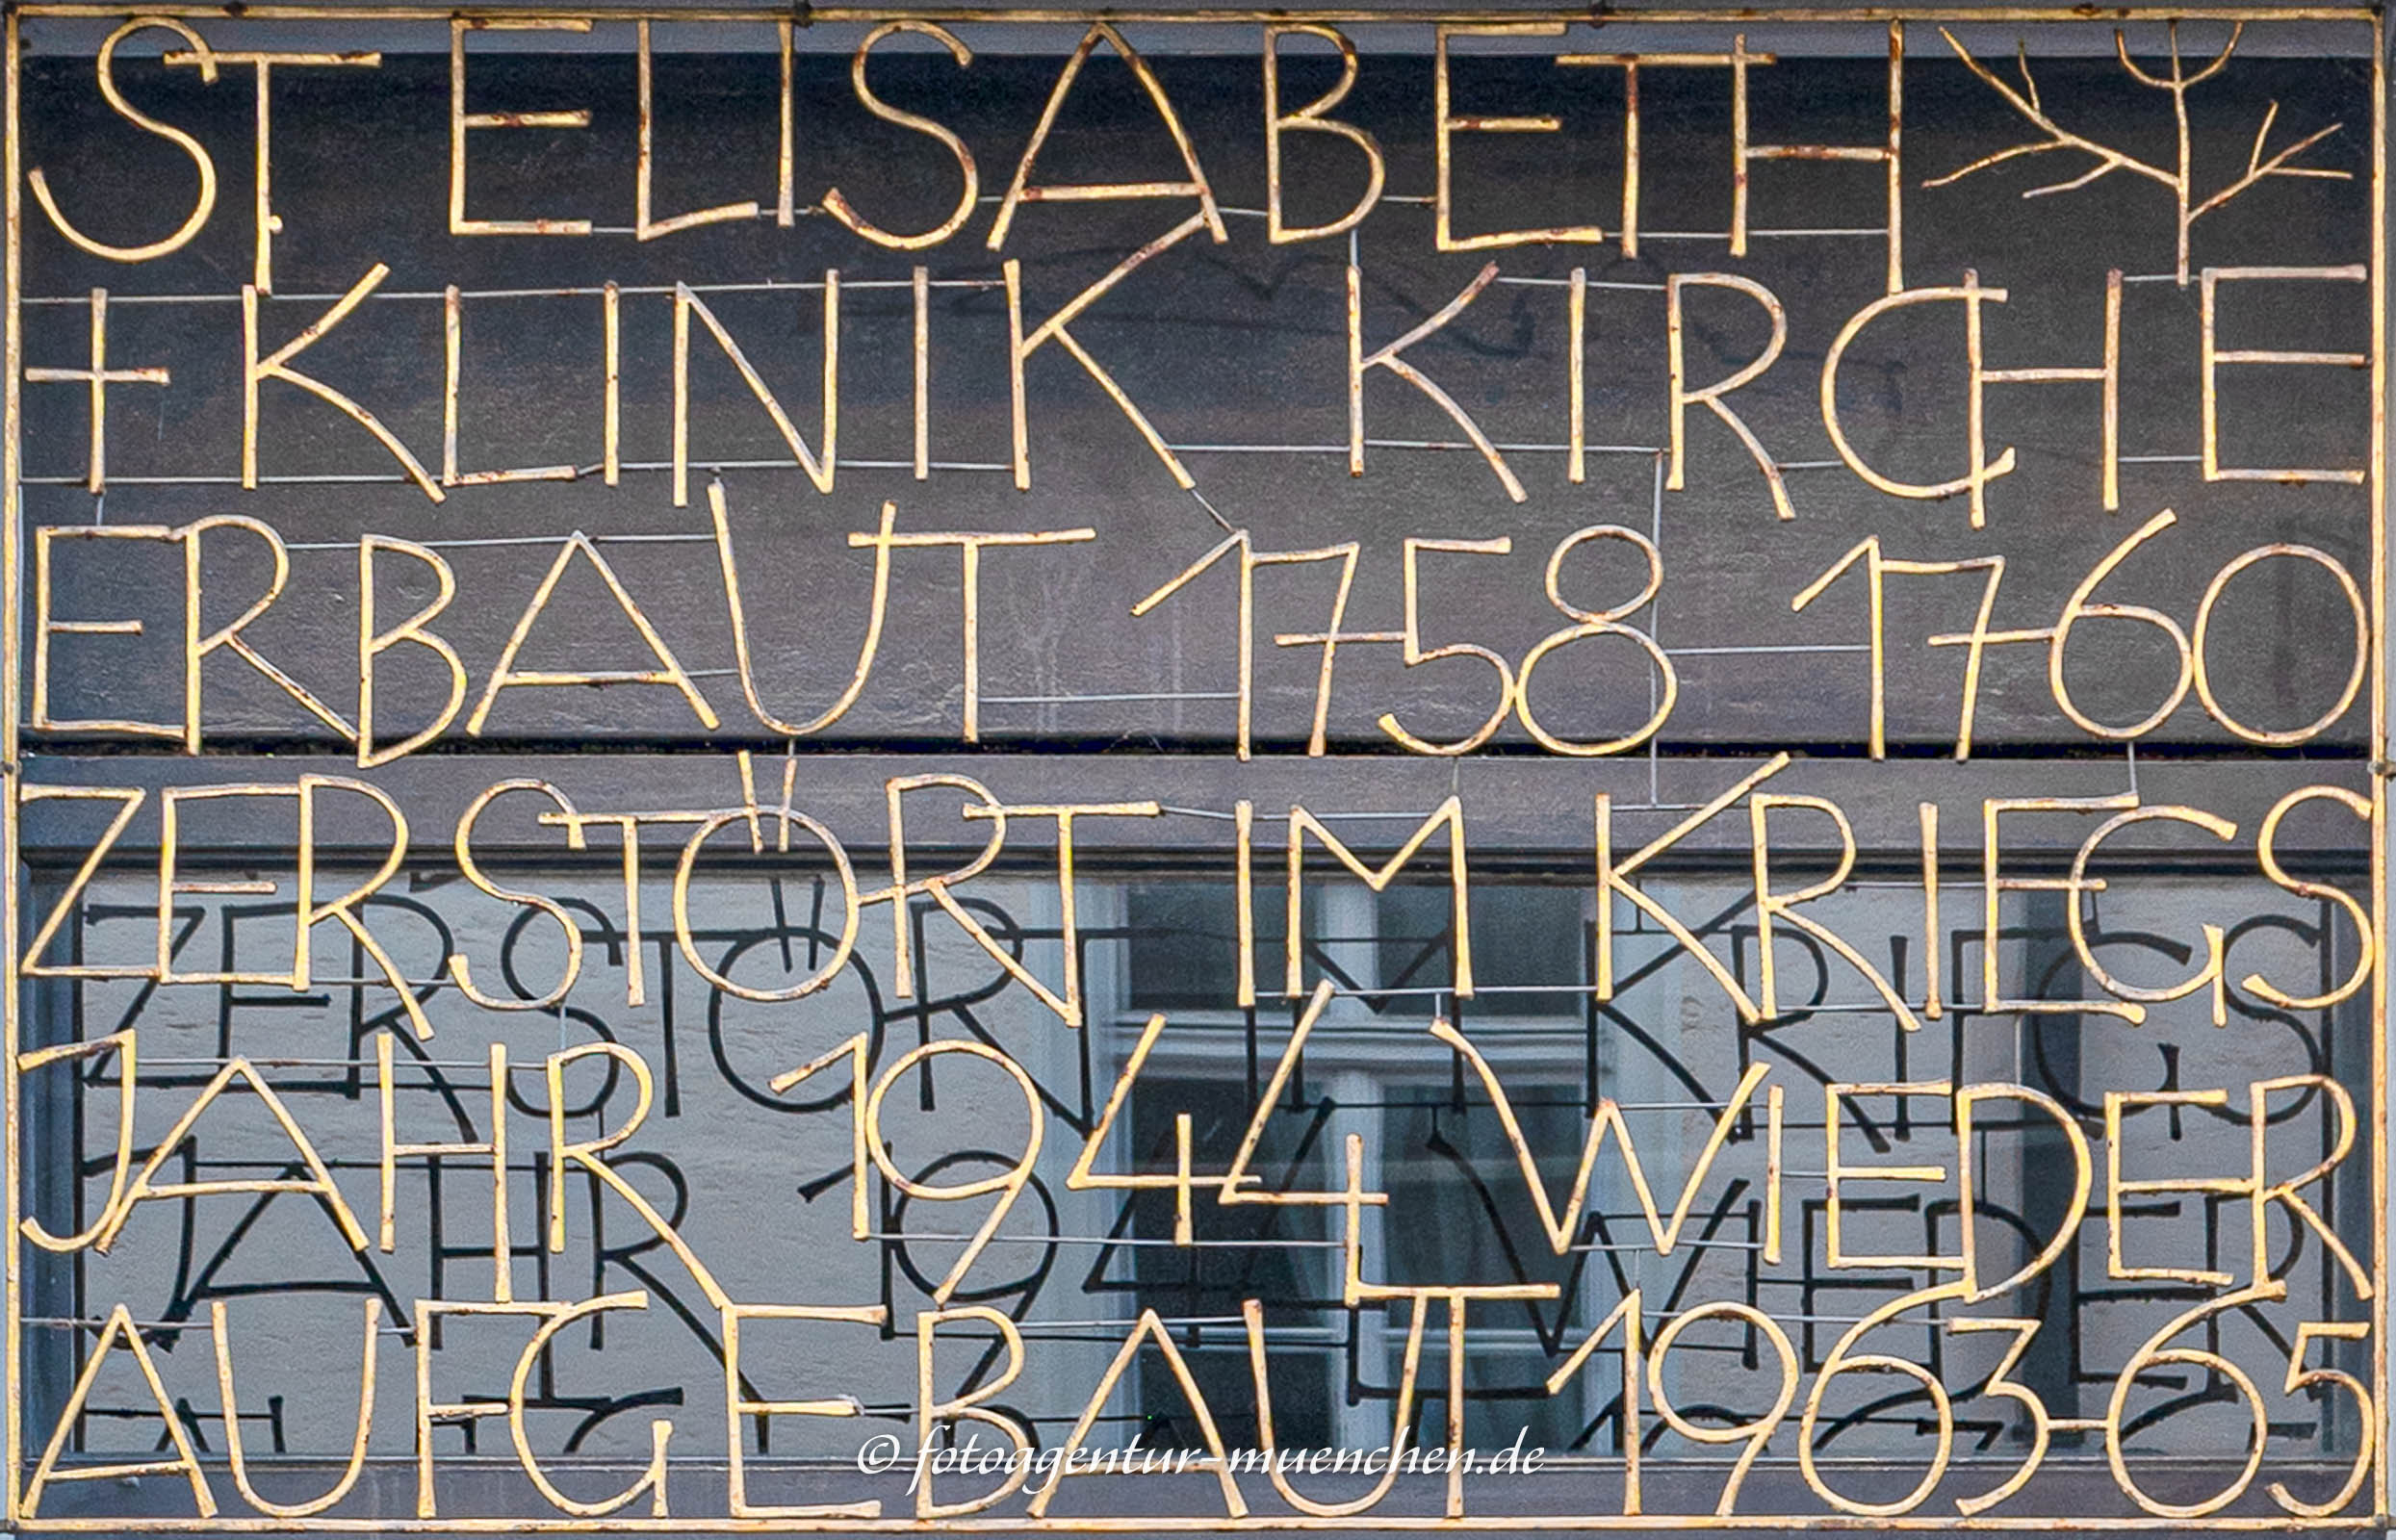 ST ELISABETH
+ KLINIK KIRCHE
ERBAUT 1758 1760
ZERSTÖRT IM KRIEGS
JAHR 1944 WIEDER
AUFGEBAUT 1963-65
© fotoagentur-muenchen.de